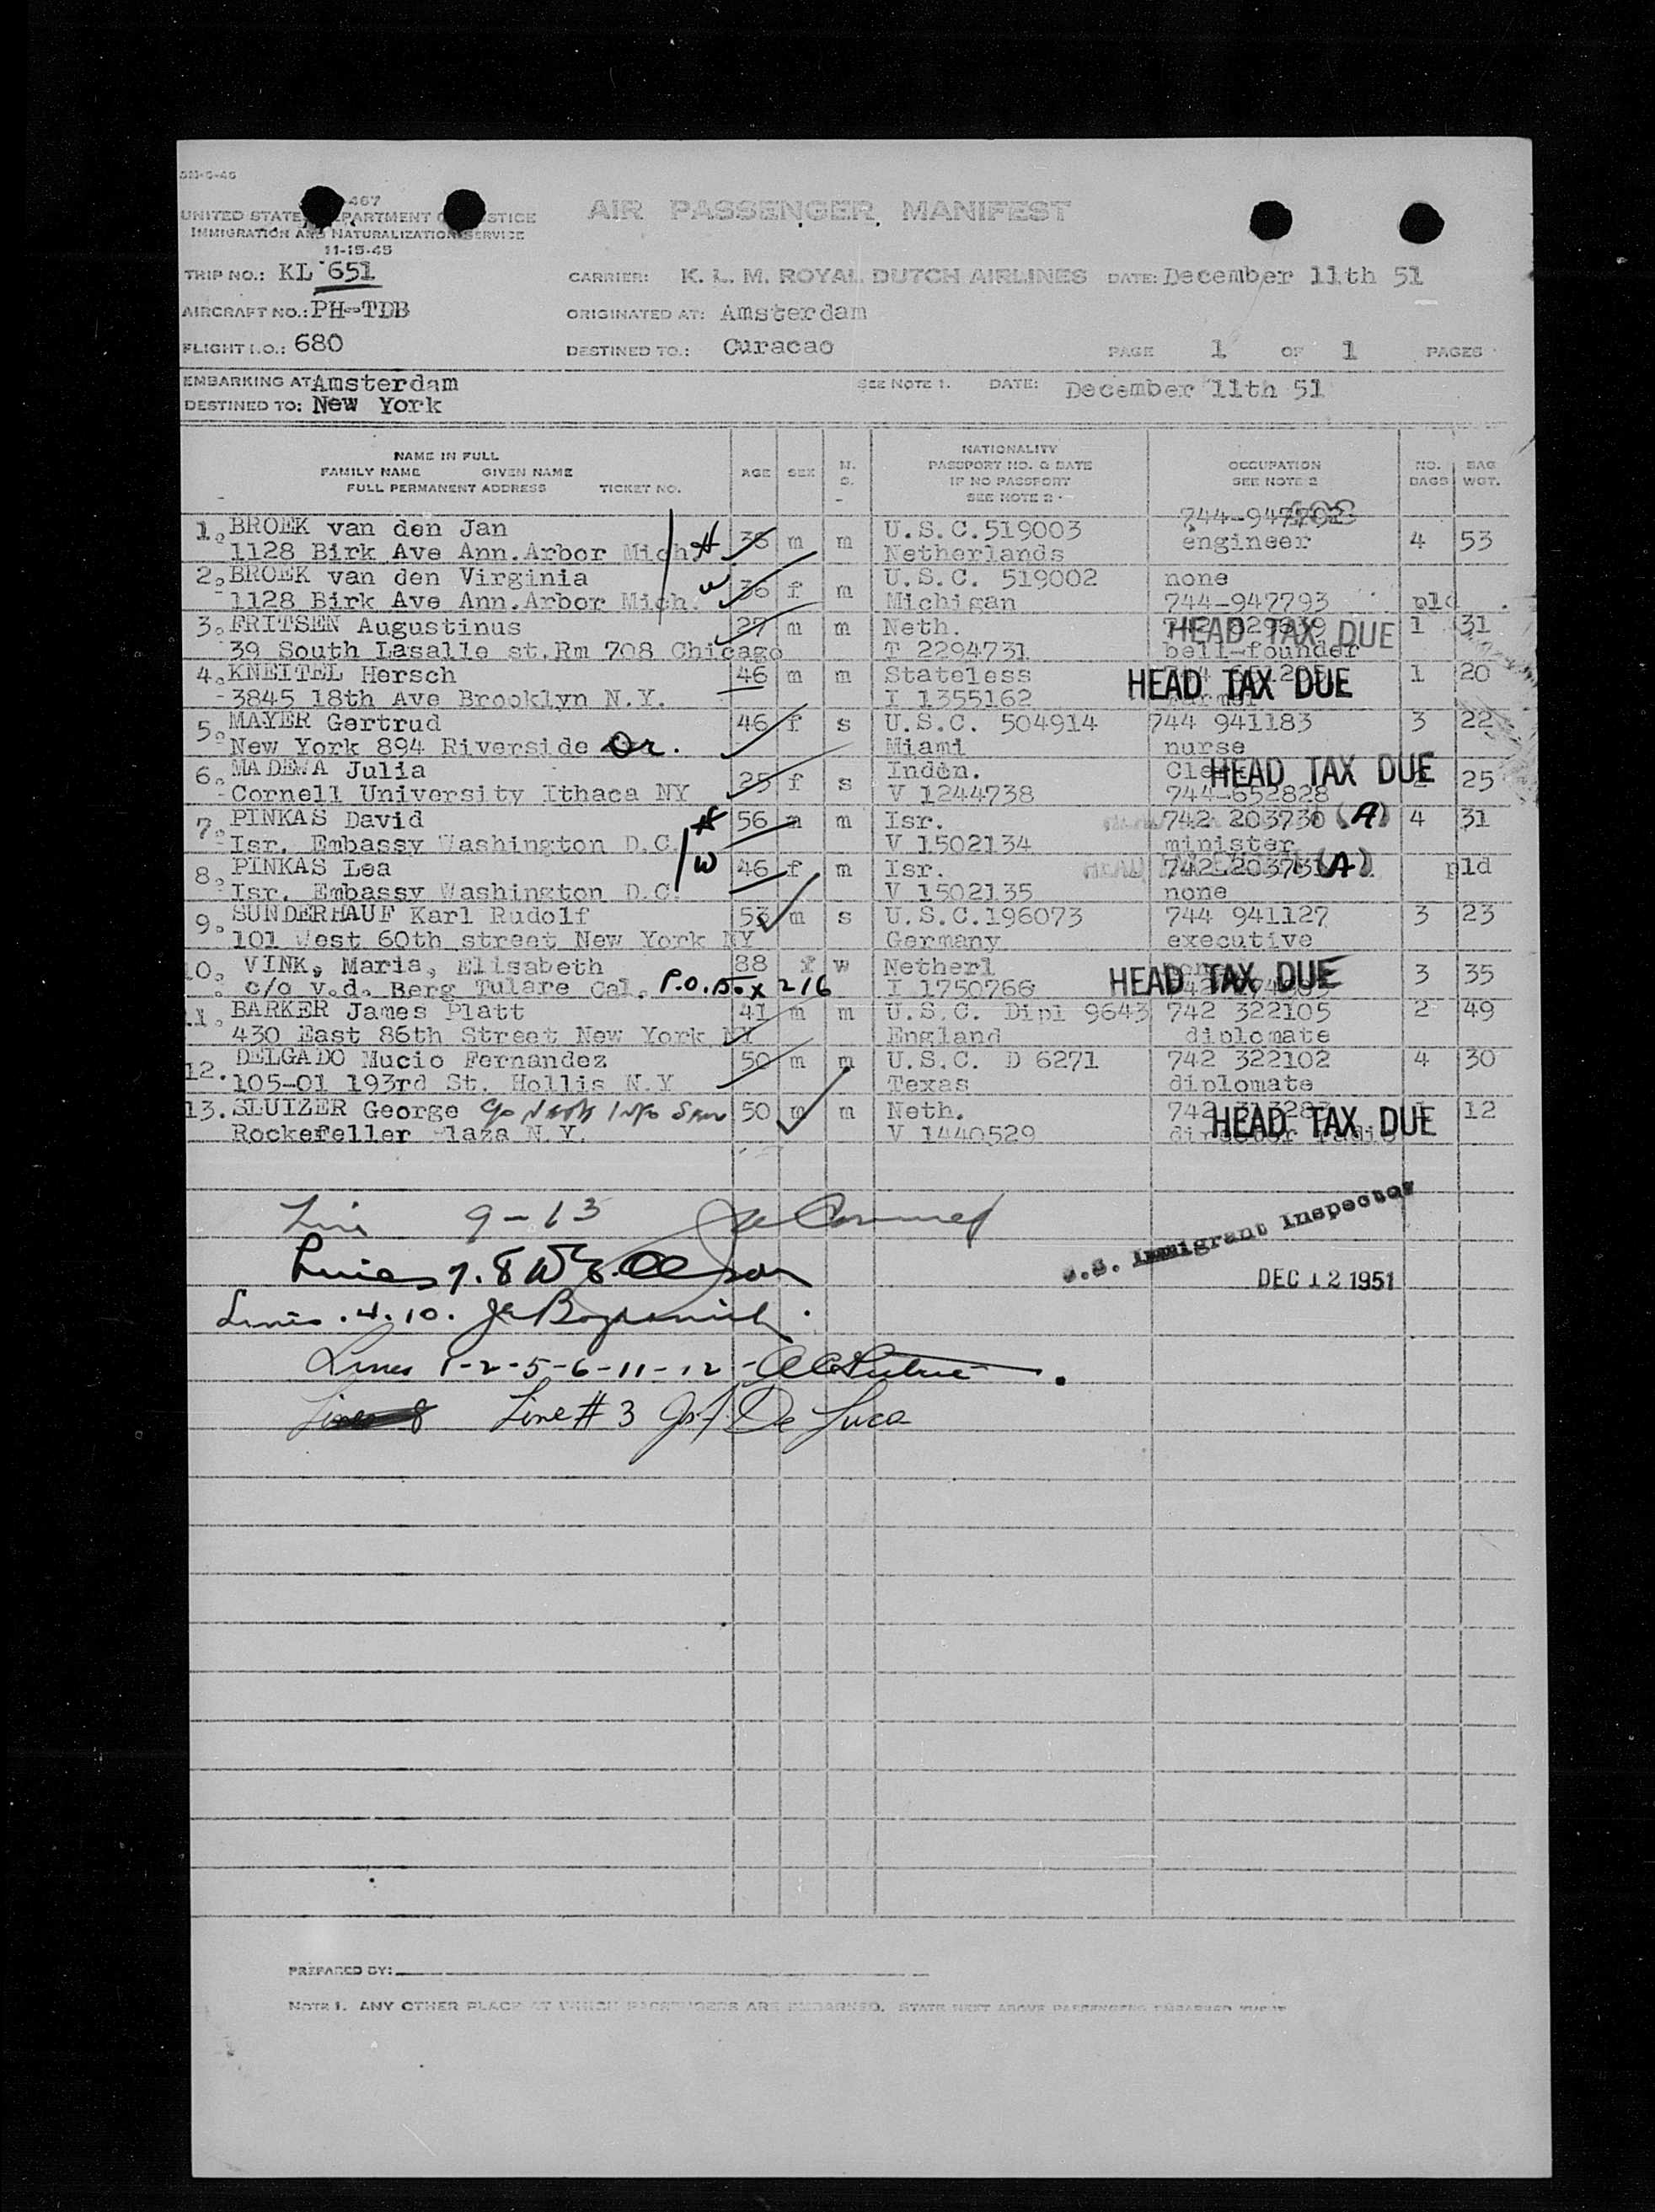 UNITED STATE PARTMENT STICE
IMMIGRATION AND NATURALIZATION SERVICE
11-15-45
AIR PASSENGER MANIFEST
TRIP NO.: KL 651 CARRIER: K. L. M. ROYAL DUTCH AIRLINES DATE: December 11th 51
AIRCRAFT NO.: PH-TDB ORIGINATED AT: Amsterdam
FLIGHT I.O.: 680 DESTINED TO.: Curacao PAGE 1 OF 1 PAGES
EMBARKING AT Amsterdam SEE NOTE 1. DATE: December 11th 51
DESTINED TO: New York
NAME IN FULL
FAMILY NAME GIVEN NAME
FULL PERMANENT ADDRESS TICKET NO.
AGE SEX M. S.
NATIONALITY
PASSPORT NO. & DATE
IF NO PASSPORT
SEE NOTE 2
OCCUPATION
SEE NOTE 2
NO. BAGS
BAG WGT.
1. BROEK van den Jan 36 m m U.S.C.519003 4 53
1128 Birk Ave Ann.Arbor Mich. H Netherlands engineer
2. BROEK van den Virginia 36 f m U.S.C. 519002 none
1128 Birk Ave Ann.Arbor Mich. W Michigan 744-947793 pld
3. FRITSEN Augustinus 27 m m Neth. HEAD TAX DUE 1 31
39 South Lasalle st.Rm 708 Chicago T 2294731 bell-founder
4. KNEITEL Hersch 46 m m Stateless HEAD TAX DUE 1 20
3845 18th Ave Brooklyn N.Y. I 1355162
5. MAYER Gertrud 46 f s U.S.C. 504914 744 941183 3 22
New York 894 Riverside Dr. Miami nurse
6. MADEWA Julia 25 f s Indon. HEAD TAX DUE 25
Cornell University Ithaca NY V 1244738 744-652828
7. PINKAS David 56 m m Isr. 742 203730 (A) 4 31
Isr. Embassy Washington D.C. H V 1502134 minister
8. PINKAS Lea W 46 f m Isr. 742 203731 (A) pld
Isr. Embassy Washington D.C. V 1502135 none
9. SUNDERHAUF Karl Rudolf 53 m s U.S.C.196073 744 941127 3 23
101 West 60th street New York NY Germany executive
10. VINK, Maria, Elisabeth 88 f w Netherl HEAD TAX DUE 3 35
c/o v.d. Berg Tulare Cal. P.O. Box 216 I 1750766
11. BARKER James Platt 41 m m U.S.C. Dipl 9643 742 322105 2 49
430 East 86th Street New York NY England diplomate
12. DELGADO Mucio Fernandez 50 m m U.S.C. D 6271 742 322102 4 30
105-01 193rd St. Hollis N.Y Texas diplomate
13. SLUIZER George 50 m m Neth. HEAD TAX DUE 12
Rockefeller Plaza N.Y. V 1440529
9-13
U.S. Immigrant Inspector
DEC 12 1951
Lines 7. 8
Lines .4.10.
Lines 1-2-5-6-11-12
Line # 3 De Luca
PREPARED BY:
NOTE 1. ANY OTHER PLACE AT WHICH PASSENGERS ARE EMBARKED, STATE NEXT ABOVE PASSENGERS EMBARKED THERE